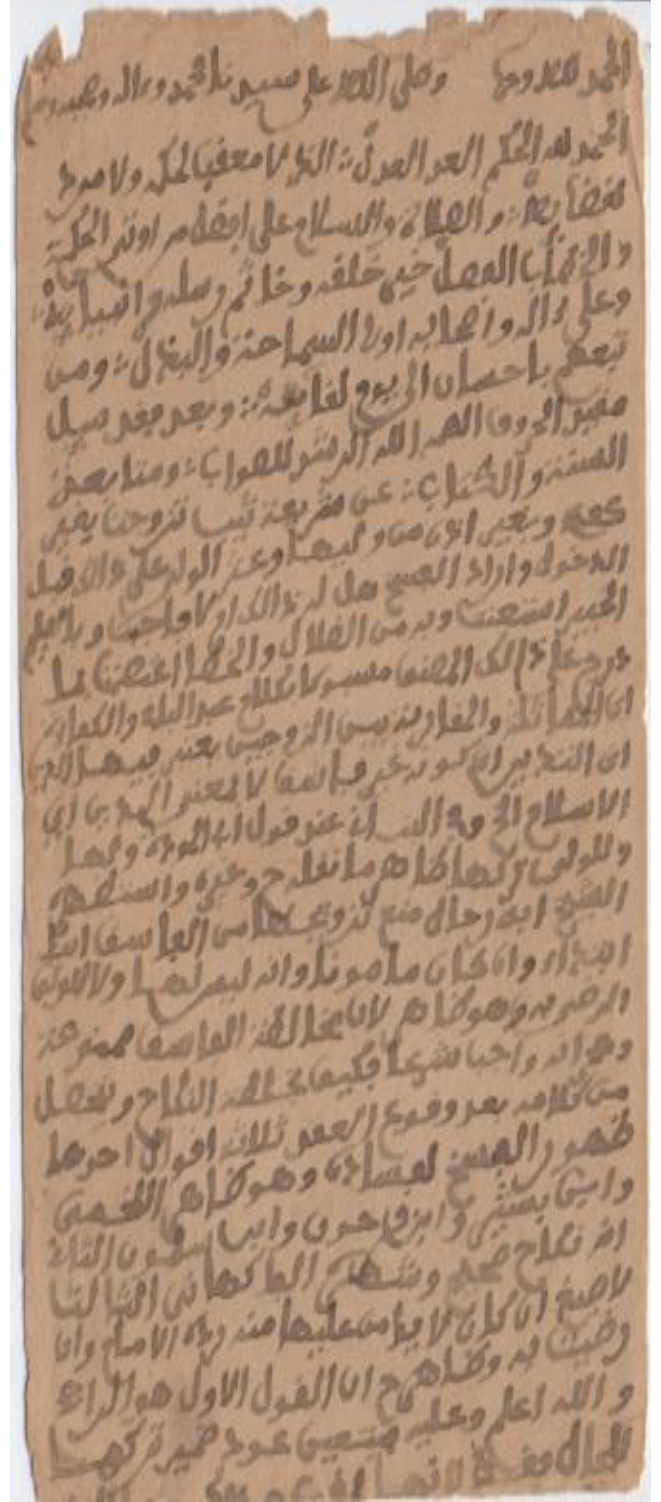 الحمد لله وحده وصلى الله على سيدنا محمد وءاله وصحبه وسلم
الحمد لله الحكم العدل الذي لا معقب لحكمه ولا مرد
لقضايه والصلاة والسلام على افضل من اوتي الحكمة
والخطاب الفصل خير خلقه وخاتم رسله وانبيايه
وعلى ءاله واصحابه اولى السماحة والبذل ومن
تبعهم باحسان الى يوم لقايه وبعد فقد سيل
مقيد الحروف الهمه الله الرشد للصواب ومتابعة
السنة والكتاب عن شريفة ثيب تزوجت بغير
كفء وبغير اذن من وليها وعثر الولي على ذالك قبل
الدخول واراد الفسخ هل له ذالك او لا فاجبت وبالعليم
الخبير استعنت وبه من الضلال والخطا اعتصمت بما
درج على ذالك المصنف
ان المماثلة والمقاربة بين الزوجين يعتبر فيها الدين
اى التدين اى كونه غير فاسق لا بمعنى الدين اى
الاسلام الى عند قول ولها
وللولى تركها ظاهر ما نقله ح وغيره واستظهره
الشيخ ابن رحال منع تزويجها من الفاسق
ابتداء وان كان مامونا وانه ليس لها ولا للولى
الرضى به وهو ظاهر لان مخالطة الفاسق ممنوعة
وهجرانه واجب شرعا فكيف بخلطة النكاح وتحصل
من كلامه بعد وقوع العقد ثلاثة اقوال احدها
الفسخ لفساده وهو ظاهر اللخمى
وابن بشير وابن فرحون وابن سلمون الثانى
انه نكاح صحيح وشهره الفاكهانى الثالث
لاصبغ ان كان لا يومن عليها منه رده الامام وان
رضيت به وظاهر ح ان القول الاول هو الراجح
والله اعلم وعليه فيتعين عود ضمير تركها
للحال فقط